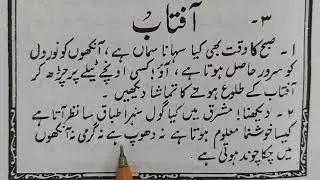 ۳۔ آفتاب
۱۔ صبح کا وقت بھی کیا سہانا سماں ہے، آنکھوں کو نور دل کو
سرور حاصل ہوتا ہے، آؤ! کسی اونچے ٹیلے پر چڑھ کر
آفتاب کے طلوع ہونے کا تماشا دیکھیں۔
۲۔ دیکھنا! مشرق میں کیا گول سنہرا طباق سا نظر آتا ہے
کیسا خوشنما معلوم ہوتا ہے نہ دھوپ ہے نہ گرمی نہ آنکھوں
میں چکاچوند ہوتی ہے۔